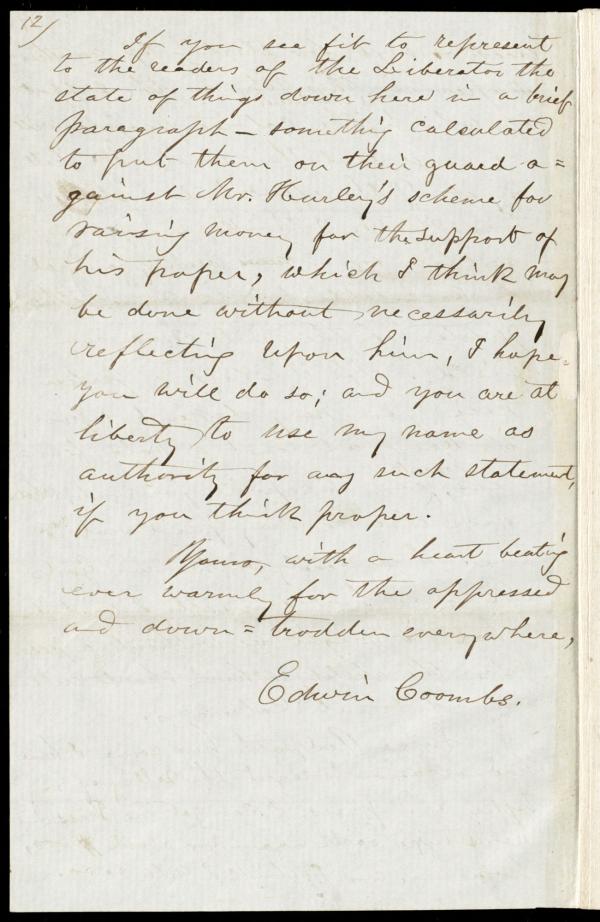 12)
If you see fit to represent
to the readers of the Liberator the
state of things down here in a brief
paragraph – something calculated
to put them on their guard a=
gainst Mr. Hurley's scheme for
raising money for the support of
his paper, which I think may
be done without necessarily
reflecting upon him, I hope
you will do so; and you are at
liberty to use my name as
authority for any such statement,
if you think proper.
Yours, with a heart beating
ever warmly for the oppressed
and down=trodden everywhere,
Edwin Coombs.